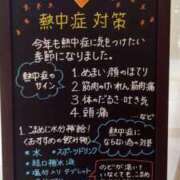 熱中症 対策
今年も熱中症に気をつけたい
季節になりました。
熱中症の
サイン
1. めまい・顔のほてり
2. 筋肉のけいれん・筋肉痛
3. 体のだるさ・吐き気
4. 頭痛
1. こまめに水分補給!
(おすすめの飲み物)
・水 ・スポーツドリンク
・経口補水液
・塩分入りタブレット
熱中症に
ならない為の
対策
のどが渇いて
いなくても